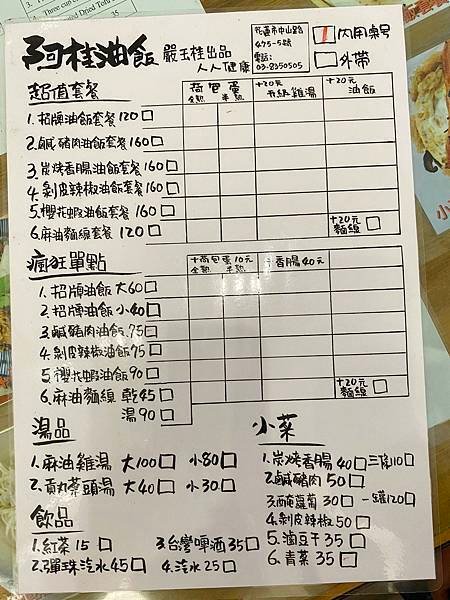 3. Three cup c
ried Dried Tofu
35
阿桂油飯 嚴玉桂出品
人人健康
花蓮市中山路
475-5號
電話:
03-8350505
1 內用桌号
□外帶
超值套餐
荷包蛋
全熟 半熟
+20元
升級雞湯
+20元
油飯
1. 招牌油飯套餐120□
2. 鹹豬肉油飯套餐160□
3. 炭烤香腸油飯套餐160□
4. 剝皮辣椒油飯套餐160□
5. 櫻花蝦油飯套餐160□
6. 麻油麵線套餐120□
+20元
麵線□
瘋狂單點
+荷包蛋10元
全熟 半熟
+香腸40元
1. 招牌油飯大60□
2. 招牌油飯小40□
3. 鹹豬肉油飯75□
4. 剝皮辣椒油飯75□
5. 櫻花蝦油飯90□
6. 麻油麵線 乾45□
湯90□
+20元
麵線□
湯品
1. 麻油雞湯 大100□ 小80□
2. 貢丸菜頭湯 大40□ 小30□
飲品
1. 紅茶15□ 3. 台灣啤酒35□
2. 彈珠汽水45□ 4. 汽水25□
小菜
1. 炭烤香腸40□三條110□
2. 鹹豬肉50□
3. 西庵蘿蔔30□一罐120□
4. 剝皮辣椒50□
5. 滷豆干35□
6. 青菜35□